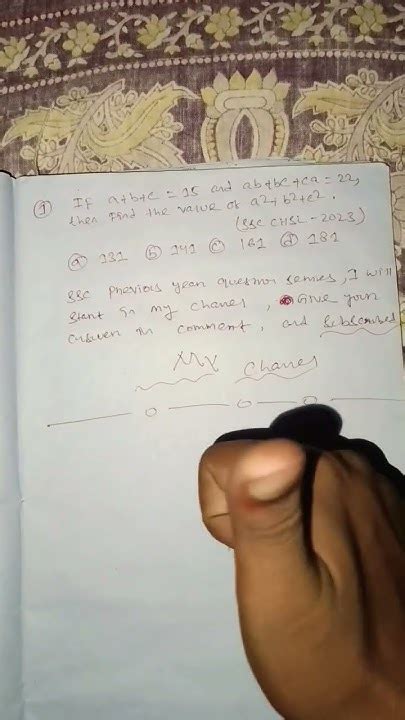 ① If a+b+c = 15 and ab+bc+ca = 22,
then find the value of a²+b²+c².
(SSC CHSL - 2023)
ⓐ 131 ⓑ 141 ⓒ 161 ⓓ 181
SSC Previous year question series, I will
start in my chanel, Give your
answer in comment, and subscribe
My Chanel